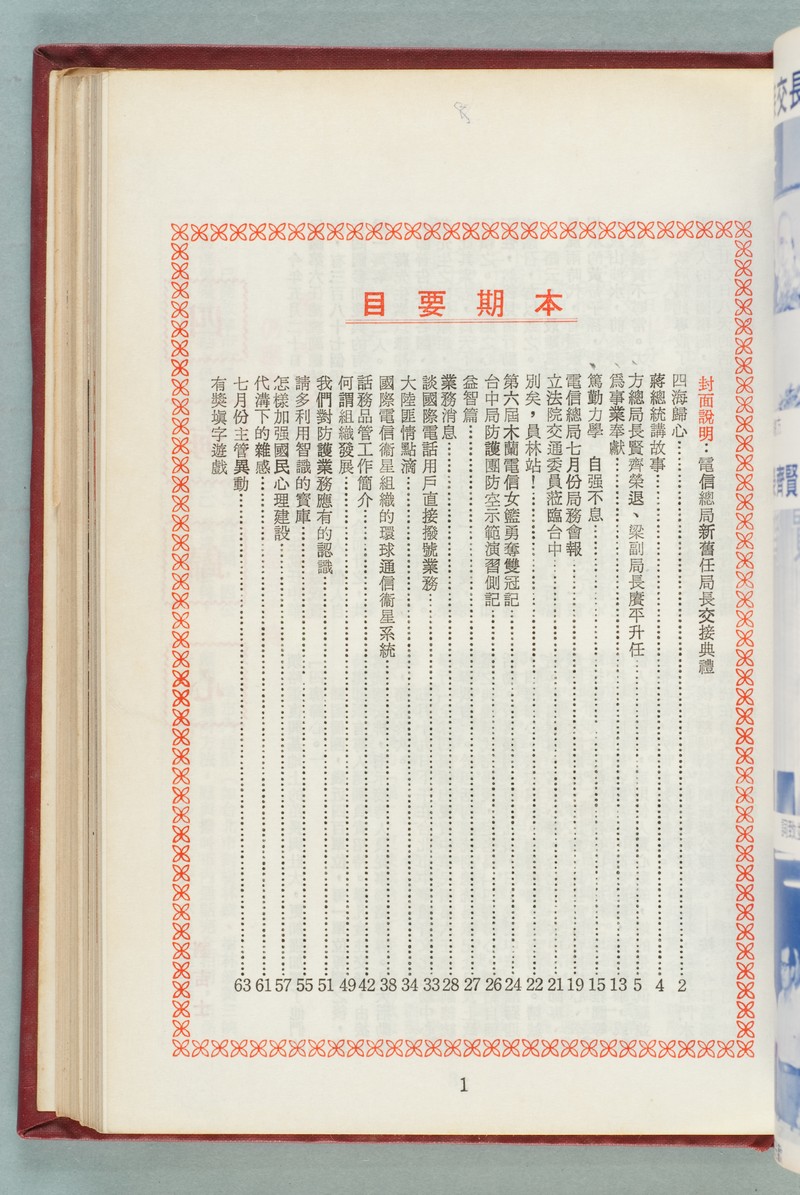 本期要目
封面說明：電信總局新舊任局長交接典禮
四海歸心…………2
蔣總統講故事…………4
方總局長賢齊榮退、梁副局長賡平升任…………5
爲事業奉獻…………13
篤勤力學　自强不息…………15
電信總局七月份局務會報…………19
立法院交通委員蒞臨台中…………21
別矣，員林站！…………22
第六屆木蘭電信女籃勇奪雙冠記…………24
台中局防護團防空示範演習側記…………26
益智篇…………27
業務消息…………28
談國際電話用戶直接撥號業務…………33
大陸匪情點滴…………34
國際電信衞星組織的環球通信衞星系統…………38
話務品管工作簡介…………42
何謂組織發展…………49
我們對防護業務應有的認識…………51
請多利用智識的寳庫…………55
怎樣加强國民心理建設…………57
代溝下的雜感…………61
七月份主管異動…………63
有獎塡字遊戲
1